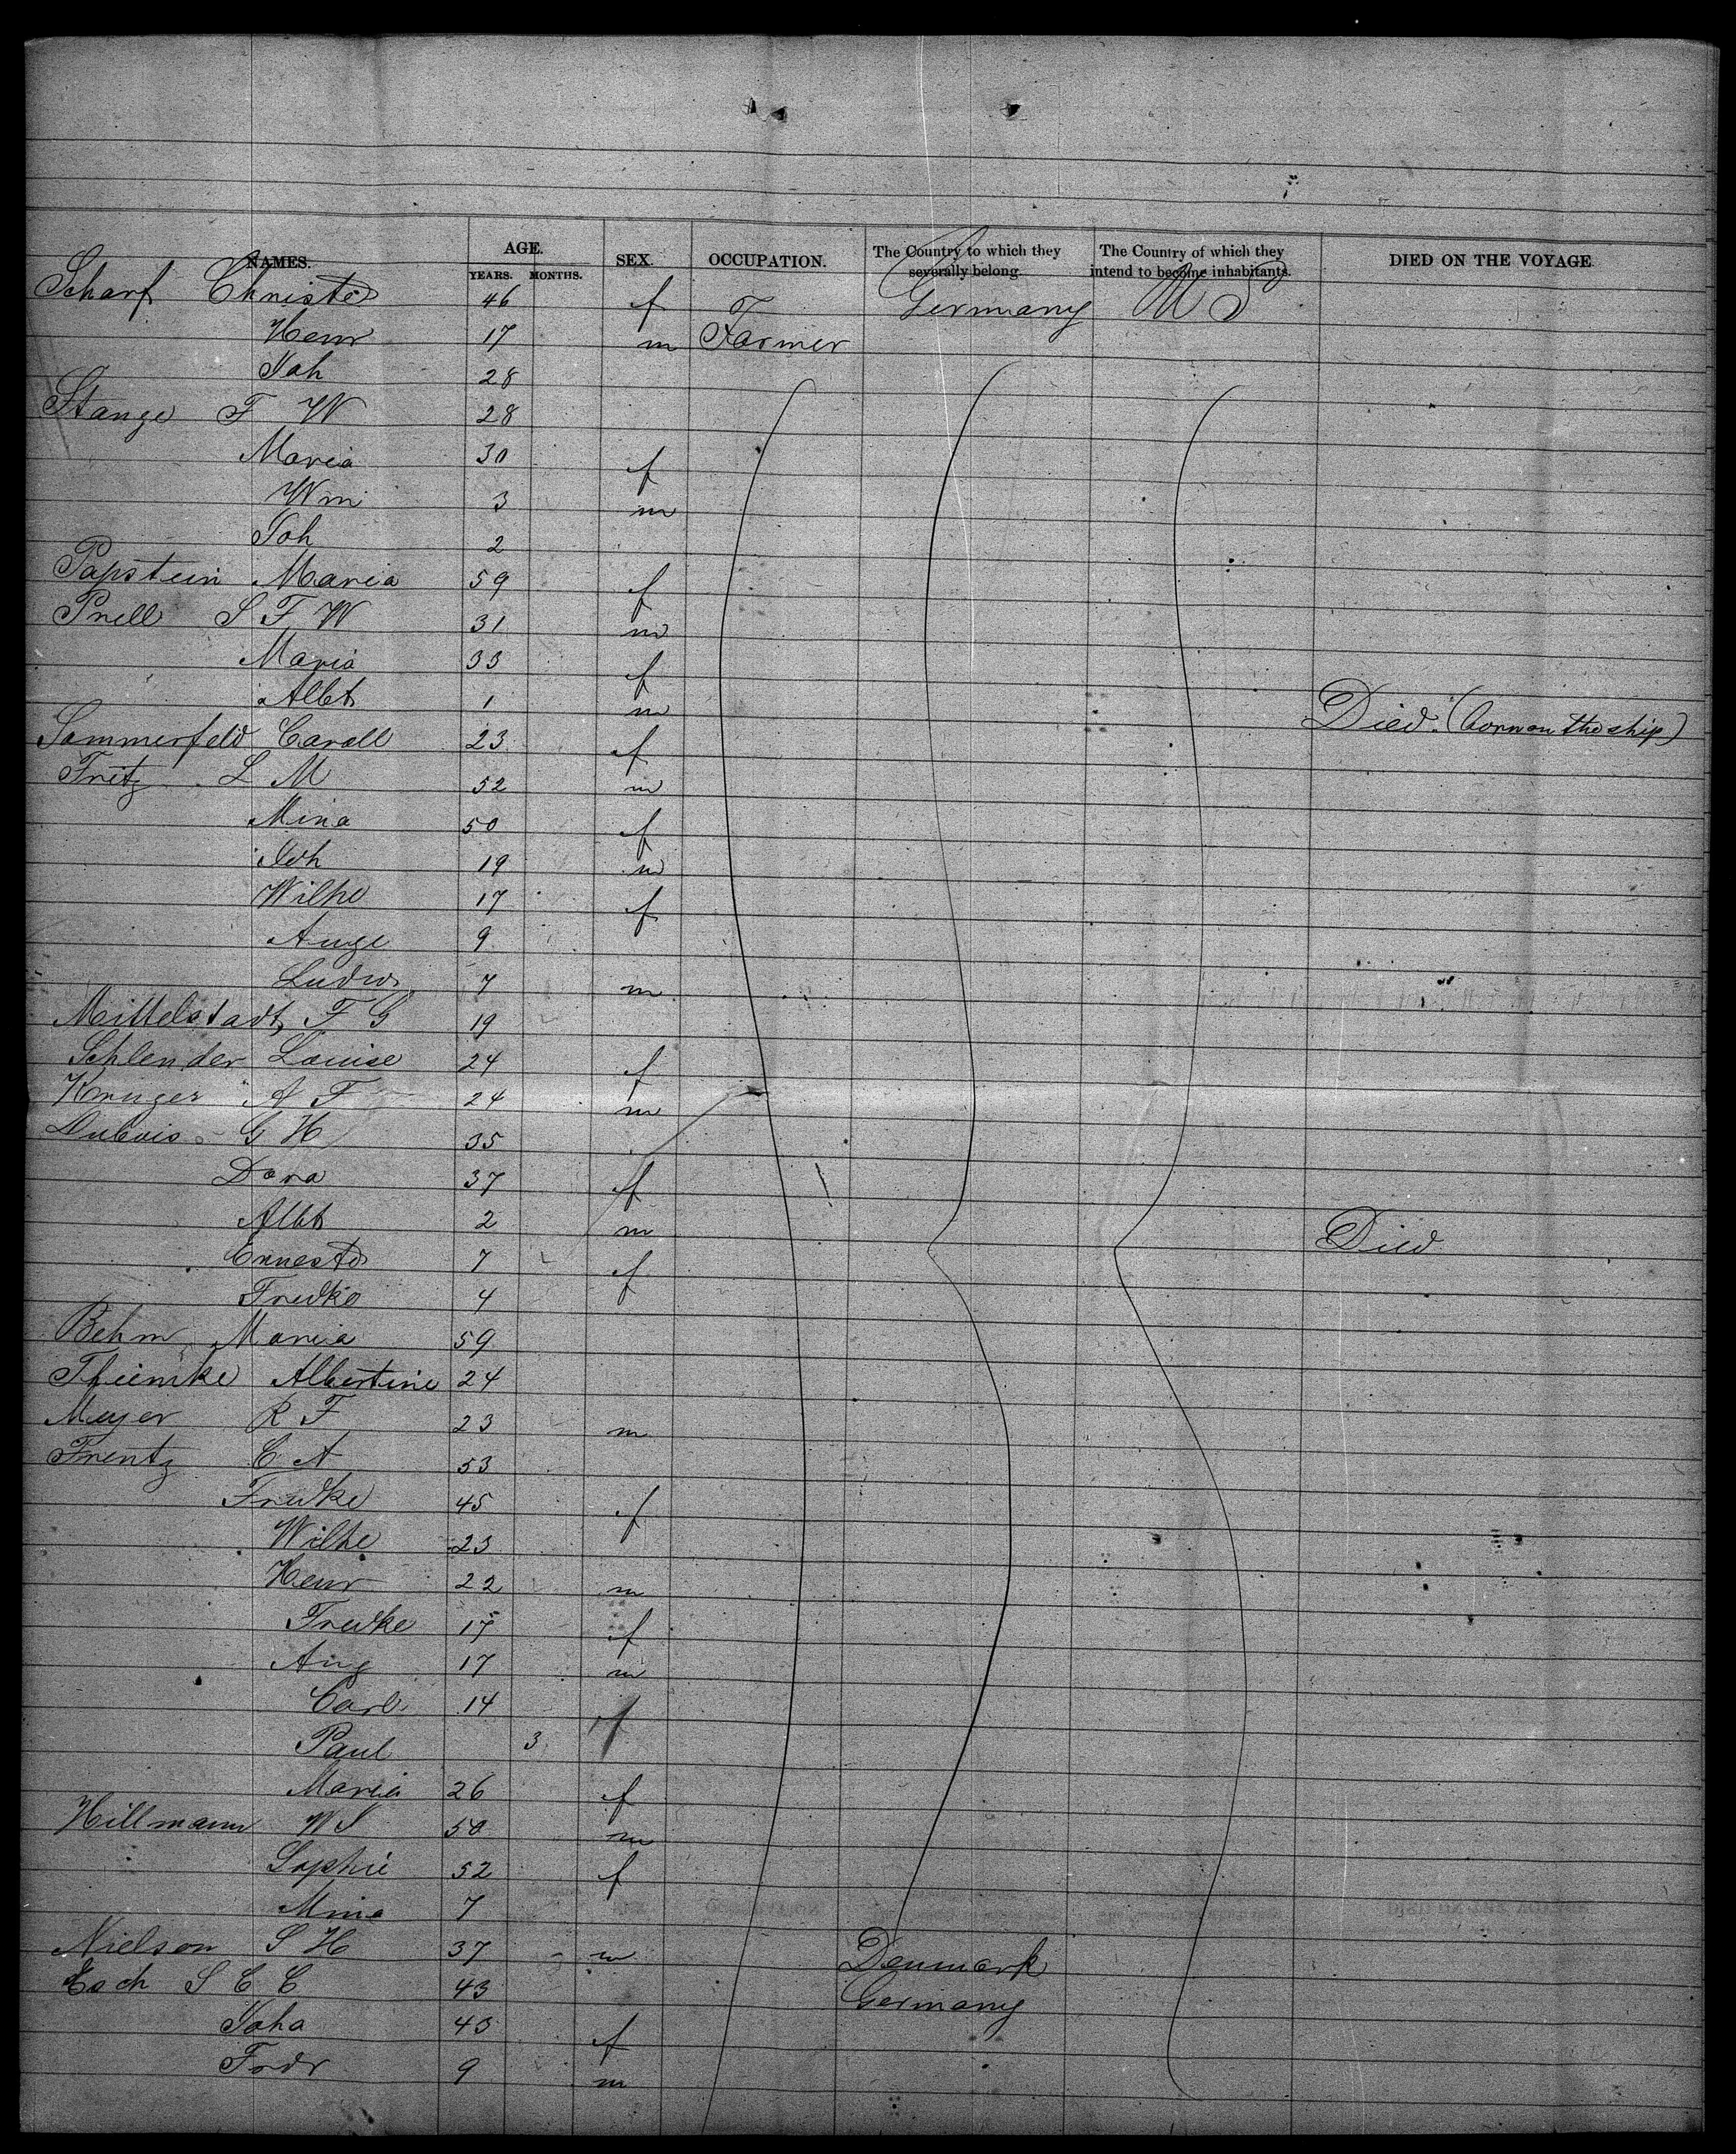 NAMES. AGE. YEARS. MONTHS. SEX. OCCUPATION. The Country to which they severally belong. The Country of which they intend to become inhabitants. DIED ON THE VOYAGE
Scharf Christe 46 f Germany U S
Henr 17 m Farmer
Joh 28
Stange F W 28
Maria 30 f
Wm 3 m
Joh 2
Papstein Maria 59 f
Prell S F W 31 m
Maria 33 f
Albt 1 m Died (born on the ship)
Sommerfeld Caroll 23 f
Fritz L M 52 m
Mina 50 f
Joh 19 m
Wilhe 17 f
Auge 9
Ludw 7 m
Mittelstadt F G 19
Schlender Louise 24 f
Kruger A F 24 m
Dubois G H 35
Dora 37 f
Albt 2 m Died
Erneste 7 f
Fredke 4
Behm Maria 59
Thiemke Albertine 24
Meyer R F 23 m
Frentz C A 53
Fredke 45 f
Wilhe 23
Henr 22 m
Fredke 17 f
Aug 17 m
Carl 14
Paul 3
Maria 26 f
Hillmann W S 50 m
Sophie 52 f
Mina 7
Nielson S H 37 m Denmark
Esch S C C 43 Germany
Joha 43 f
Fredr 9 m